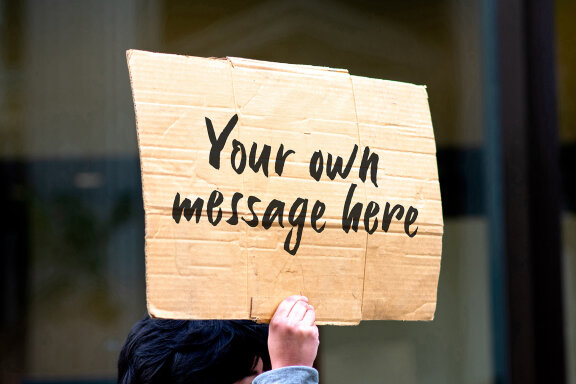 Your own
message here